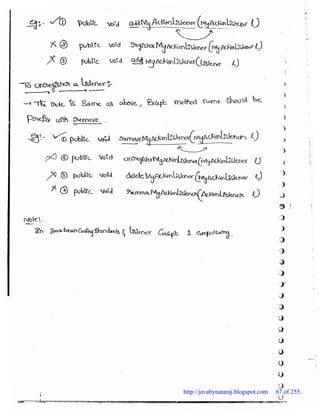 eg:- ✓① public void addMyActionListener(MyActionListener l)
✗② public void registerMyActionListener(MyActionListener l)
✗③ public void addMyActionListener(Listener l)
To unregister a listener:-
→ The rule is same as above, Except method name should be
Prefix with Remove.
eg:- ✓① public void removeMyActionListener(MyActionListener l)
✗② public void unregisterMyActionListener(MyActionListener l)
✗③ public void deleteMyActionListener(MyActionListener l)
✗④ public void removeMyActionListener(ActionListener l)
Note:-
In Java bean Coding Standards & Listener Concept is compulsory.
http://javabynataraj.blogspot.com 67 of 255.